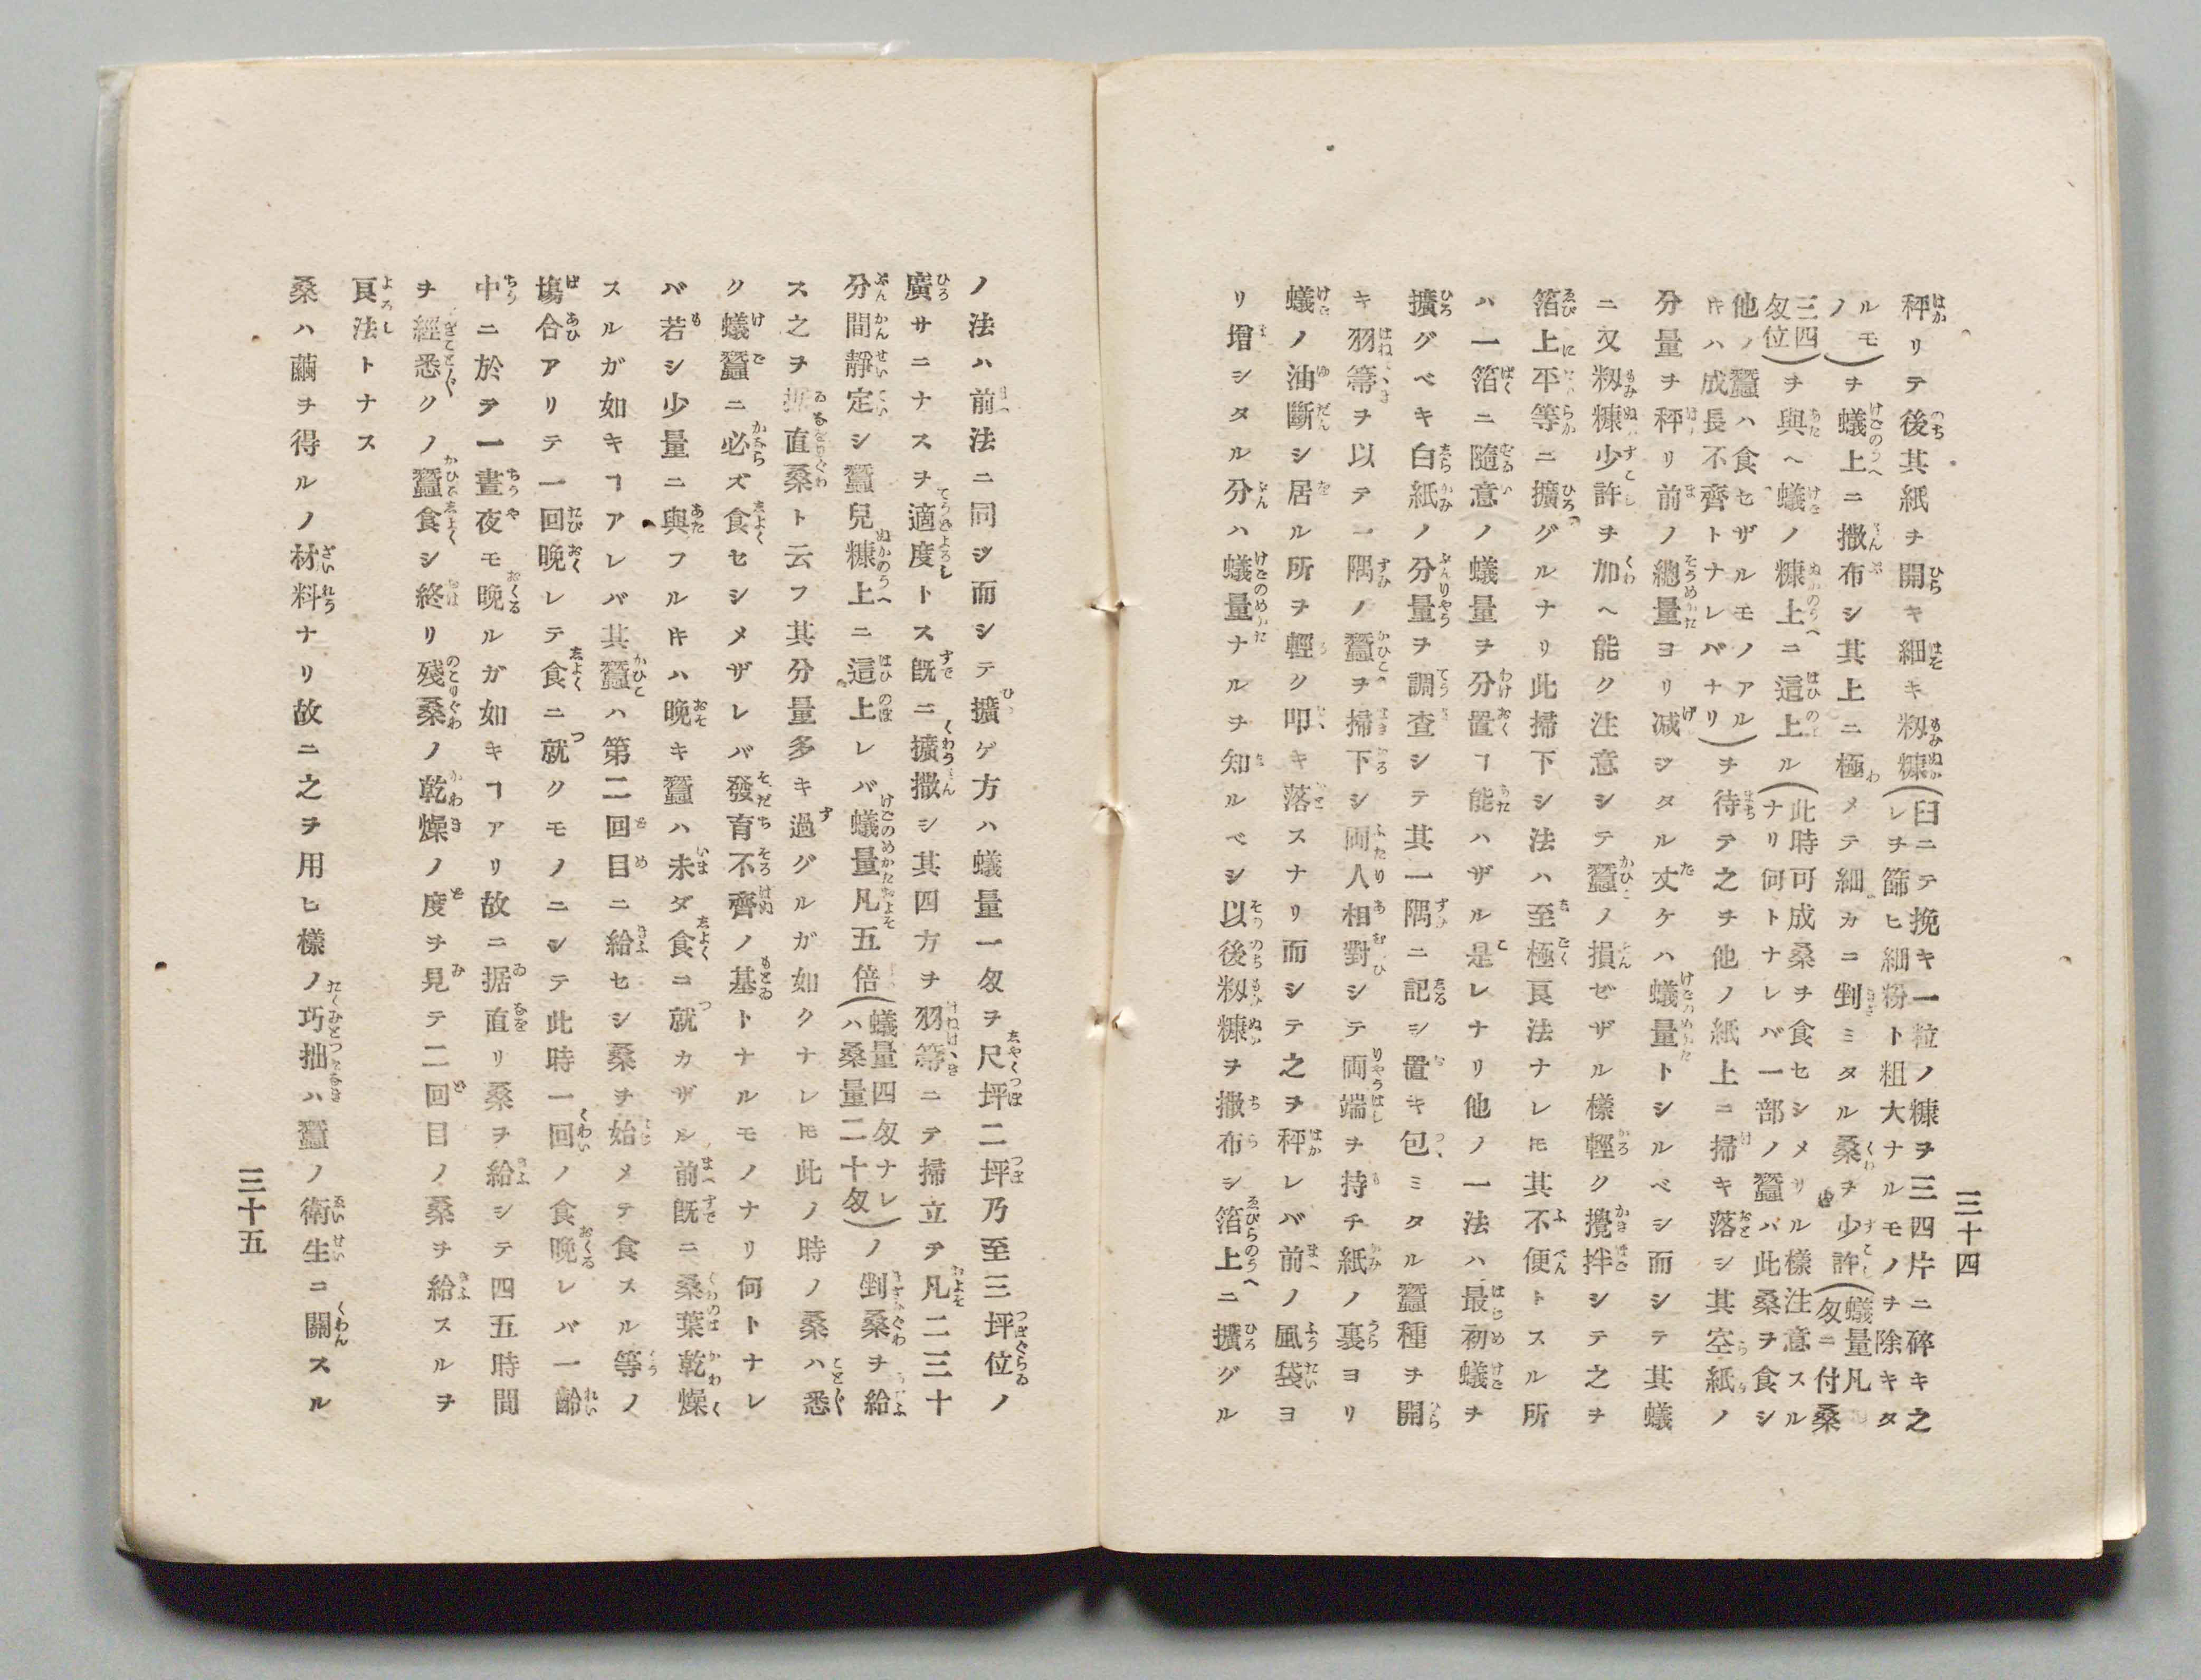 三十四
秤リテ後其紙ヲ開キ細キ籾糠(臼ニテ挽キ一粒ノ糠ヲ三四片ニ碎キ之レヲ篩ヒ細粉ト粗大ナルモノヲ除キタ
ルモノ)ヲ蟻上ニ撒布シ其上ニ極メテ細カニ剉ミタル桑ヲ少許(蟻量凡匁ニ付桑
三四匁位)ヲ與ヘ蟻ノ糠上ニ這上ル(此時可成桑ヲ食セシメサル樣注意スルナリ何トナレバ一部ノ蠶ハ此桑ヲ食シ
他ノ蠶ハ食セザルモノアルキハ成長不齊トナレバナリ)ヲ待テ之ヲ他ノ紙上ニ掃キ落シ其空紙ノ
分量ヲ秤リ前ノ總量ヨリ减ジタル丈ケハ蟻量トシルベシ而シテ其蟻
ニ又籾糠少許ヲ加ヘ能ク注意シテ蠶ノ損ゼザル樣輕ク攪拌シテ之ヲ
箔上平等ニ擴グルナリ此掃下シ法ハ至極良法ナレ𪜈其不便トスル所
ハ一箔ニ隨意ノ蟻量ヲ分置ヿ能ハザル是レナリ他ノ一法ハ最初蟻ヲ
擴グベキ白紙ノ分量ヲ調査シテ其一隅ニ記シ置キ包ミタル蠶種ヲ開
キ羽箒ヲ以テ一隅ノ蠶ヲ掃下シ両人相對シテ両端ヲ持チ紙ノ裏ヨリ
蟻ノ油斷シ居ル所ヲ輕ク叩キ落スナリ而シテ之ヲ秤レバ前ノ風袋ヨ
リ增シタル分ハ蟻量ナルヲ知ルベシ以後籾糠ヲ撒布シ箔上ニ擴グル
ノ法ハ前法ニ同ジ而シテ擴ゲ方ハ蟻量一匁ヲ尺坪二坪乃至三坪位ノ
廣サニナスヲ適度トス既ニ擴撒シ其四方ヲ羽箒ニテ掃立テ凡二三十
分間靜定シ蠶兒糠上ニ這上レバ蟻量凡五倍(蟻量四匁ナレハ桑量二十匁)ノ剉桑ヲ給
ス之ヲ据直桑ト云フ其分量多キ過グルガ如クナレ𪜈此ノ時ノ桑ハ悉
ク蟻蠶ニ必ズ食セシメザレバ發育不齊ノ基トナルモノナリ何トナレ
バ若シ少量ニ與フルキハ晩キ蠶ハ未ダ食ニ就カザル前既ニ桑葉乾燥
スルガ如キヿアレバ其蠶ハ第二回目ニ給セシ桑ヲ始メテ食スル等ノ
塲合アリテ一回晩レテ食ニ就クモノニシテ此時一回ノ食晩レバ一齡
中ニ於テ一晝夜モ晩ルガ如キヿアリ故ニ据直リ桑ヲ給シテ四五時間
ヲ經悉クノ蠶食シ終リ殘桑ノ乾燥ノ度ヲ見テ二回目ノ桑ヲ給スルヲ
良法トナス
桑ハ繭ヲ得ルノ材料ナリ故ニ之ヲ用ヒ樣ノ巧拙ハ蠶ノ衛生ニ關スル
三十五